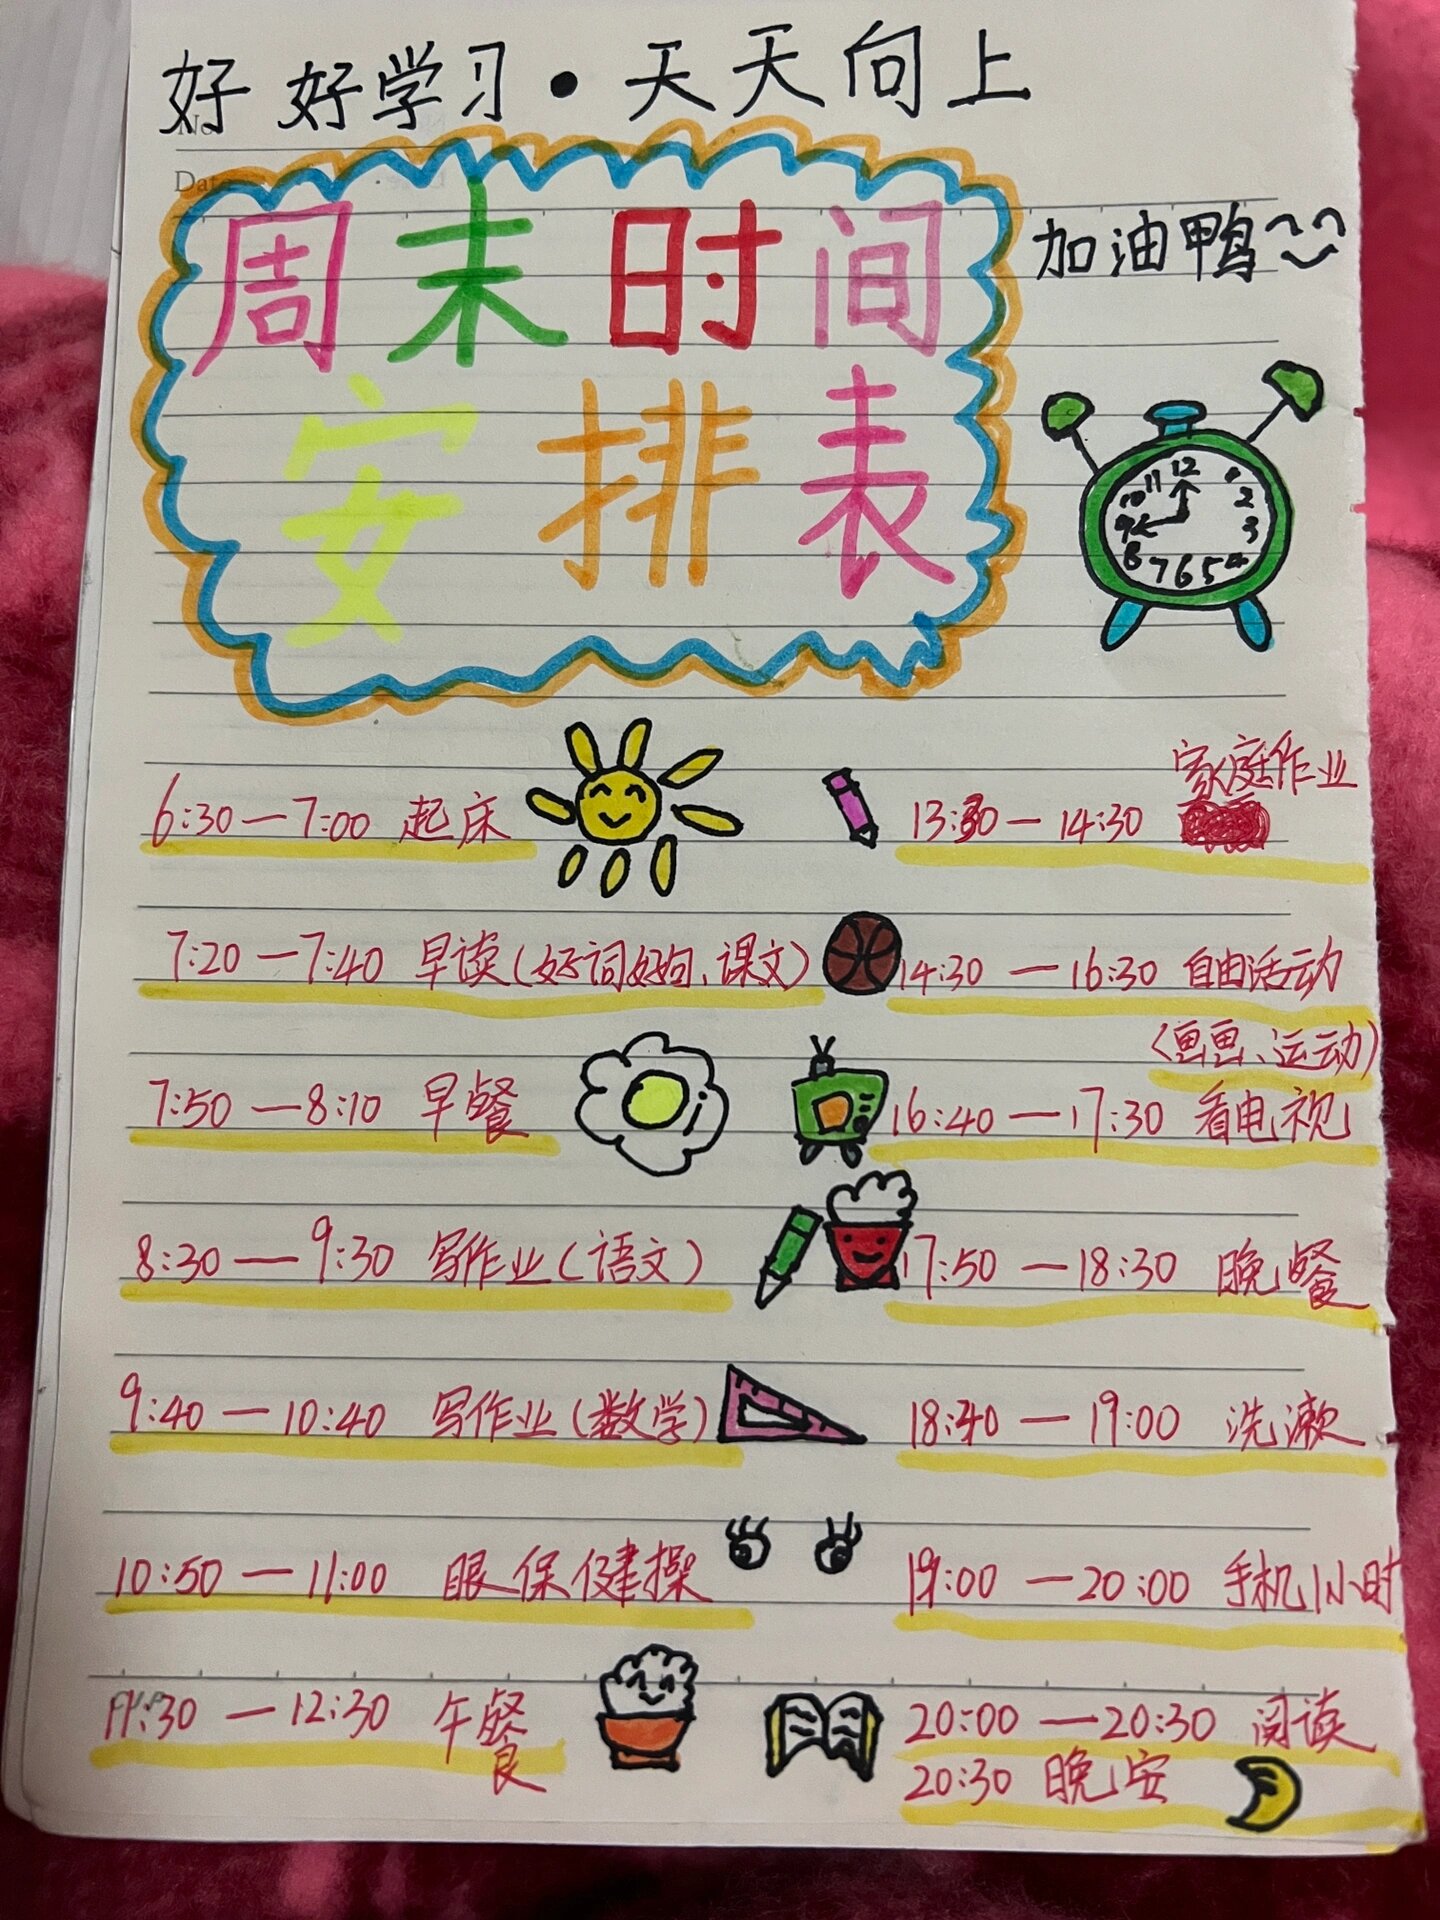 好好学习·天天向上
周末时间
安排表
加油鸭
12
1
11
2
10
3
9
4
8
5
7
6
6:30—7:00 起床
7:20—7:40 早读(好词好句、课文)
7:50—8:10 早餐
8:30—9:30 写作业(语文)
9:40—10:40 写作业(数学)
10:50—11:00 眼保健操
11:30—12:30 午餐
家庭作业
13:30—14:30
14:30—16:30 自由活动
(画画、运动)
16:40—17:30 看电视
17:50—18:30 晚餐
18:40—19:00 洗漱
19:00—20:00 手机1小时
20:00—20:30 阅读
20:30 晚安